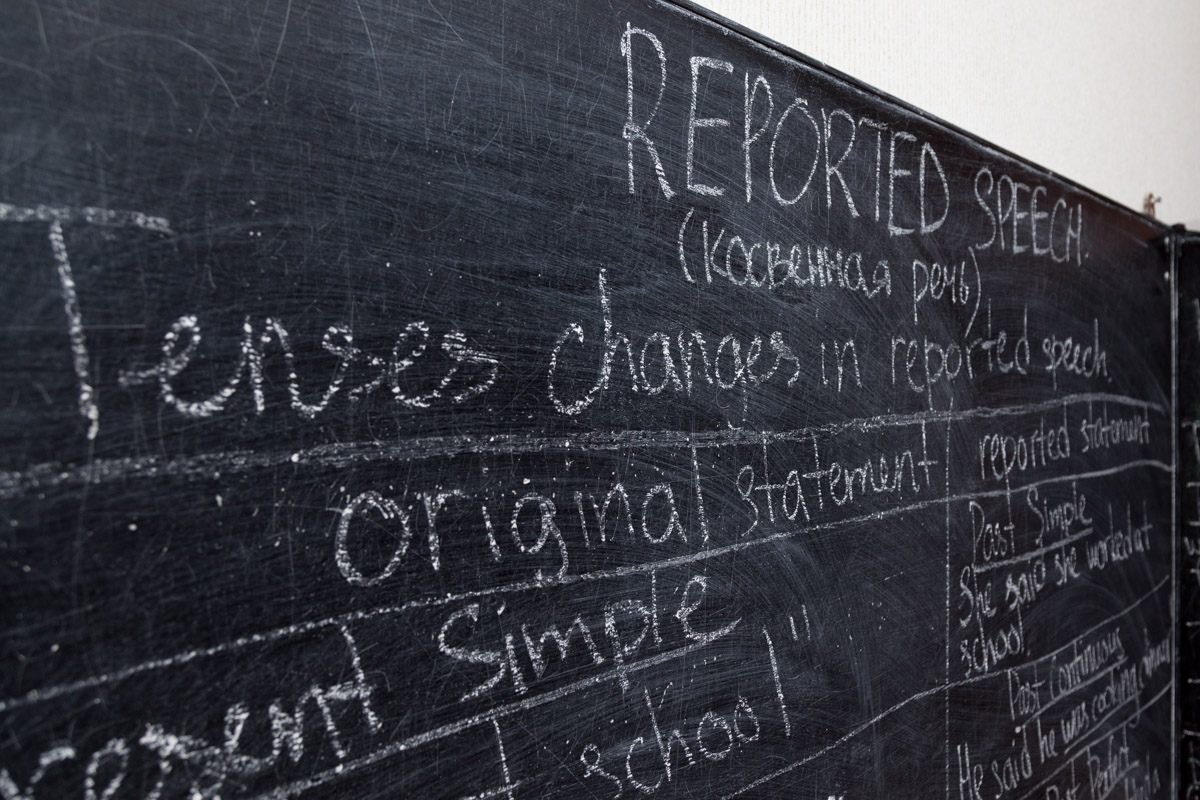 REPORTED SPEECH.
(косвенная речь)
Tenses changes in reported speech.
original statement
reported statement
Present Simple
school"
Past Simple
She said she worked at
school.
Past Continuous
He said he was cooking
Past Perfect